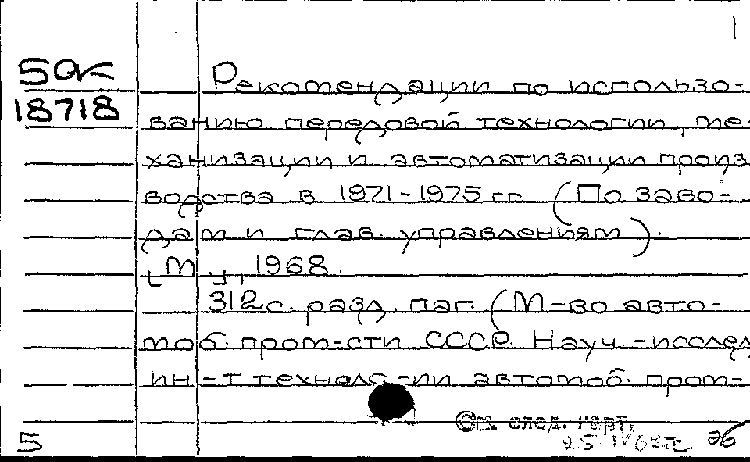 50к
18718
Рекомендации по использо-
ванию передовой технологии, ме-
ханизации и автоматизации произ
водства в 1971-1975 гг. (По заво-
дам и глав. управлениям).
[М.], 1968.
312 с. разд. паг. (М-во авто-
моб. пром-сти СССР. Науч.-исслед
ин-т технологии автомоб. пром-
См. след. карт.
5